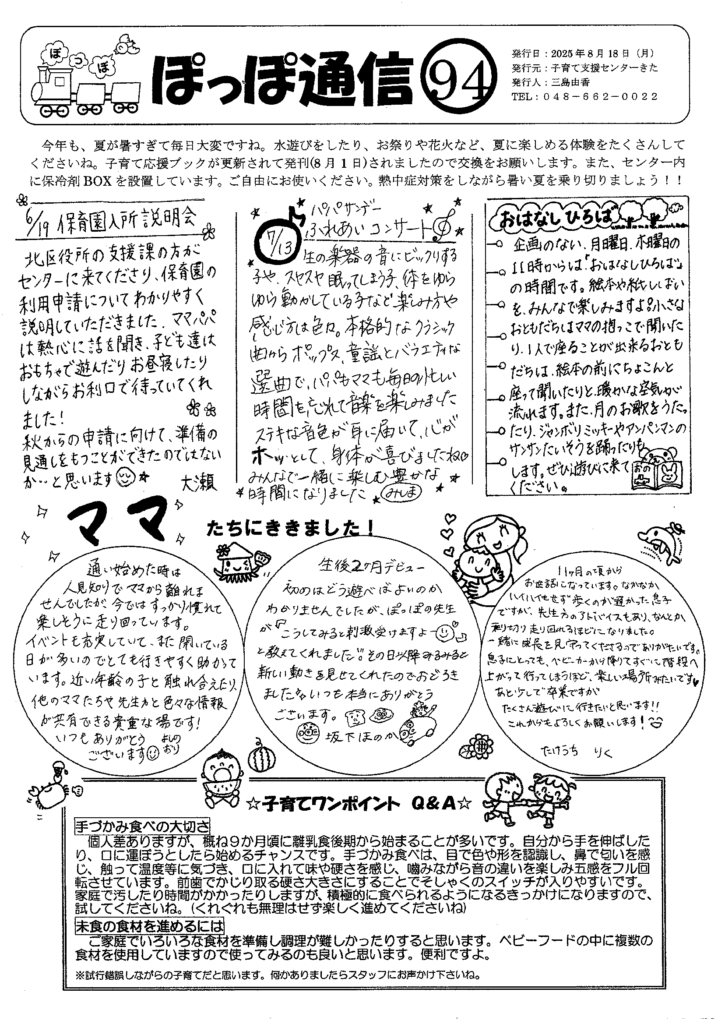 ぽっぽ
ぽっぽ通信 94
発行日：2025年8月18日（月）
発行元：子育て支援センターきた
発行人：三島由香
TEL：048－662－0022
今年も、夏が暑すぎて毎日大変ですね。水遊びをしたり、お祭りや花火など、夏に楽しめる体験をたくさんして
くださいね。子育て応援ブックが更新されて発刊(8月1日)されましたので交換をお願いします。また、センター内
に保冷剤BOXを設置しています。ご自由にお使いください。熱中症対策をしながら暑い夏を乗り切りましょう！！
6/19 保育園入所説明会
北区役所の支援課の方が
センターに来てくださり、保育園の
利用申請についてわかりやすく
説明していただきました。ママパパ
は熱心に話を聞き、子ども達は
おもちゃで遊んだりお昼寝したり
しながらお利口で待っていてくれ
ました！
秋からの申請に向けて、準備の
見通しをもつことができたのではない
か…と思います
大瀬
7/13
パパサンデー
ふれあいコンサート
生の楽器の音にビックリする
子や、スヤスヤ眠ってしまう子、体をゆら
ゆら動かしている子など楽しみ方や
感じ方は色々。本格的なクラシック
曲からポップス、童謡とバラエティな
選曲で、パパもママも毎日の忙しい
時間を忘れて音楽を楽しみました
ステキな音色が耳に届いて、心が
ホッとして、身体が喜びましたね
みんなで一緒に楽しむ豊かな
時間になりました みしま
おはなしひろば
企画のない、月曜日、水曜日の
11時からは「おはなしひろば」
の時間です。絵本や紙しばい
を、みんなで楽しみますよ♪小さな
おともだちはママの抱っこで聞いた
り、1人で座ることが出来るおとも
だちは、絵本の前にちょこんと
座って聞いたりと、暖かな空気が
流れます。また、月のお歌をうた
たり、ジャンボリミッキーやアンパンマンの
サンサンたいそうを踊ったりも
します。ぜひ遊びに来て
ください。
ママ たちにききました！
通い始めた時は
人見知りでママから離れま
せんでしたが、今ではすっかり慣れて
楽しそうに走り回っています。
イベントも充実していて、また開いている
日が多いのでとても行きやすく助かって
います。近い年齢の子と触れ合えたり、
他のママたちや先生方と色々な情報
が共有できる貴重な場です！
いつもありがとう
ございます
よしの
おり
生後2ヶ月デビュー
初めはどう遊べばよいのか
わかりませんでしたが、ぽっぽの先生
が「こうしてみると刺激受けますよー
と教えてくれました」。その日以降みるみると
新しい動きを見せてくれたのでおどろき
ました。いつも本当にありがとう
ございます。
坂下ほのか
11ヶ月の頃から
お世話になっています。なかなか
ハイハイもせず歩くのが遅かった息子
ですが、先生方のアドバイスもあり、なんとか
乗り切り走り回れるほどになりました。
一緒に成長を見守ってくださるつでありがたいです。
息子にとっても、ベビーカーから降りてすぐに階段へ
上がって行ってしまうほど、楽しい場所みたいです♥
あと少しで卒業ですが
たくさん遊びに行きたいと思います!!
これからもよろしくお願いします！
たけうち りく
☆子育てワンポイント Q＆A☆
手づかみ食べの大切さ
個人差ありますが、概ね９か月頃に離乳食後期から始まることが多いです。自分から手を伸ばした
り、口に運ぼうとしたら始めるチャンスです。手づかみ食べは、目で色や形を認識し、鼻で匂いを感
じ、触って温度等に気づき、口に入れて味や硬さを感じ、噛みながら音の違いを楽しみ五感をフル回
転させています。前歯でかじり取る硬さ大きさにすることでそしゃくのスイッチが入りやすいです。
家庭で汚したり時間がかかったりしますが、積極的に食べられるようになるきっかけになりますので、
試してくださいね。（くれぐれも無理はせず楽しく進めてくださいね）
未食の食材を進めるには
ご家庭でいろいろな食材を準備し調理が難しかったりすると思います。ベビーフードの中に複数の
食材を使用していますので使ってみるのも良いと思います。便利ですよ。
※試行錯誤しながらの子育てだと思います。何かありましたらスタッフにお声かけ下さいね。